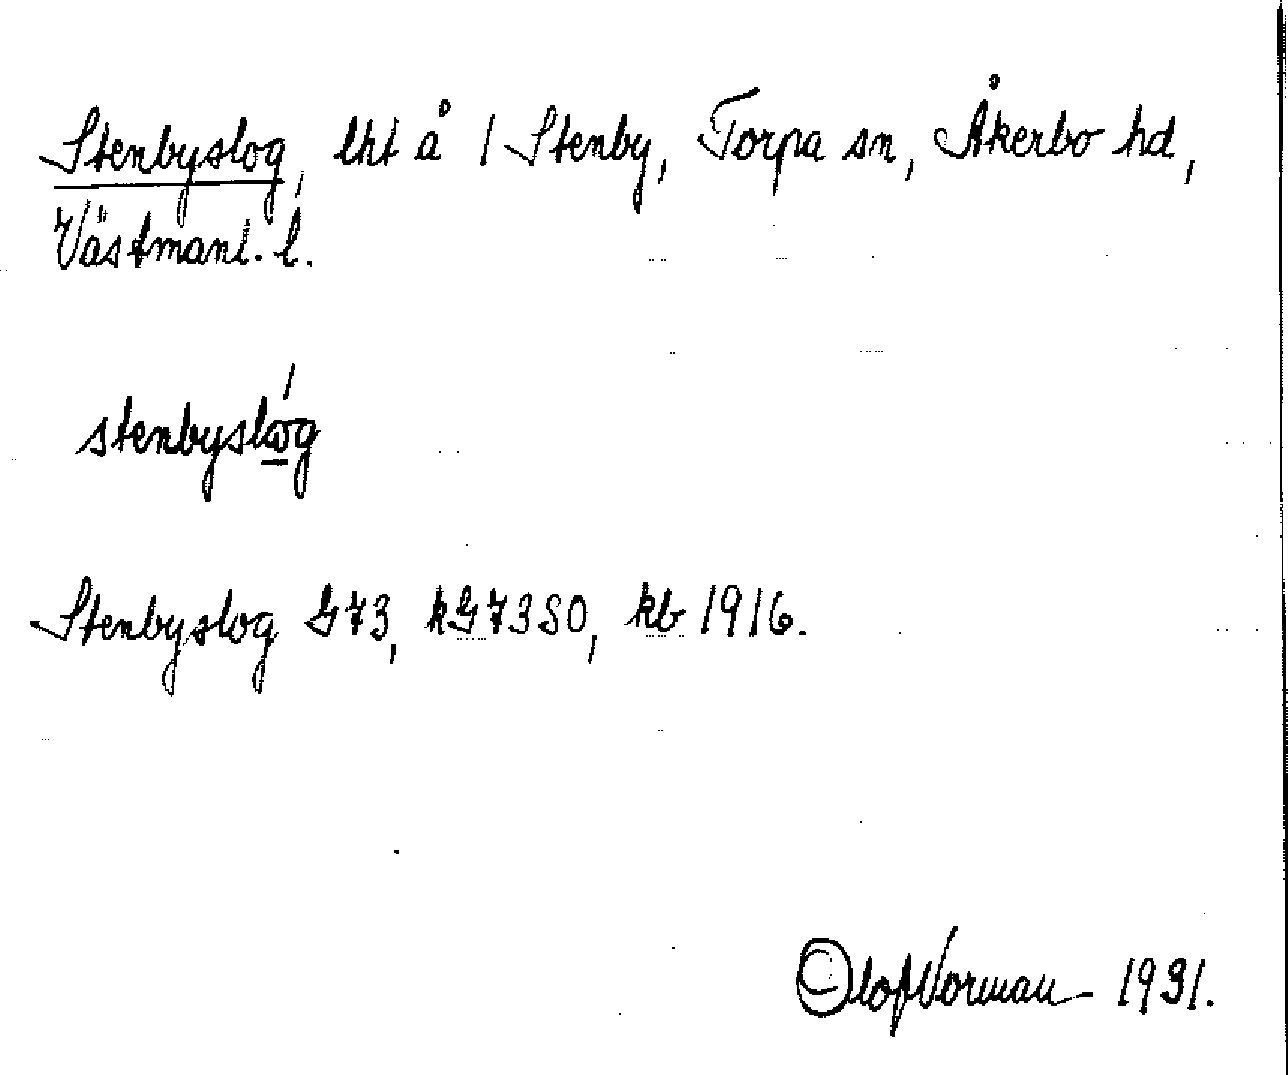 Stenbyslog, lht å / Stenby, Torpa sn, Åkerbo hd,
Västmanl. l.
stenbyslo̲g
Stenbyslog G73, kG7350, kb 1916.
Olof Vorman 1931.